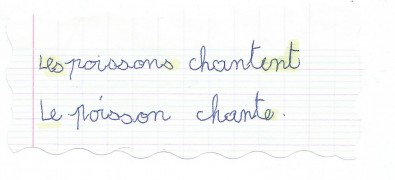 Les poissons chantent
Le poisson chante.